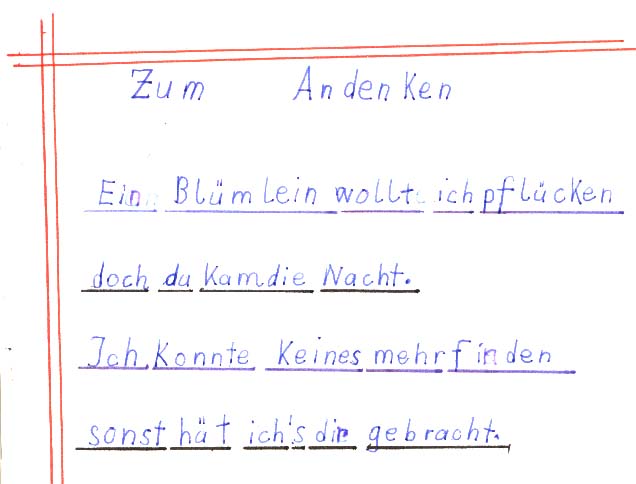 Zum Andenken
Ein Blümlein wollt ich pflücken
doch du kam die Nacht.
Ich konnte keines mehr finden
sonst hät ich's dir gebracht.